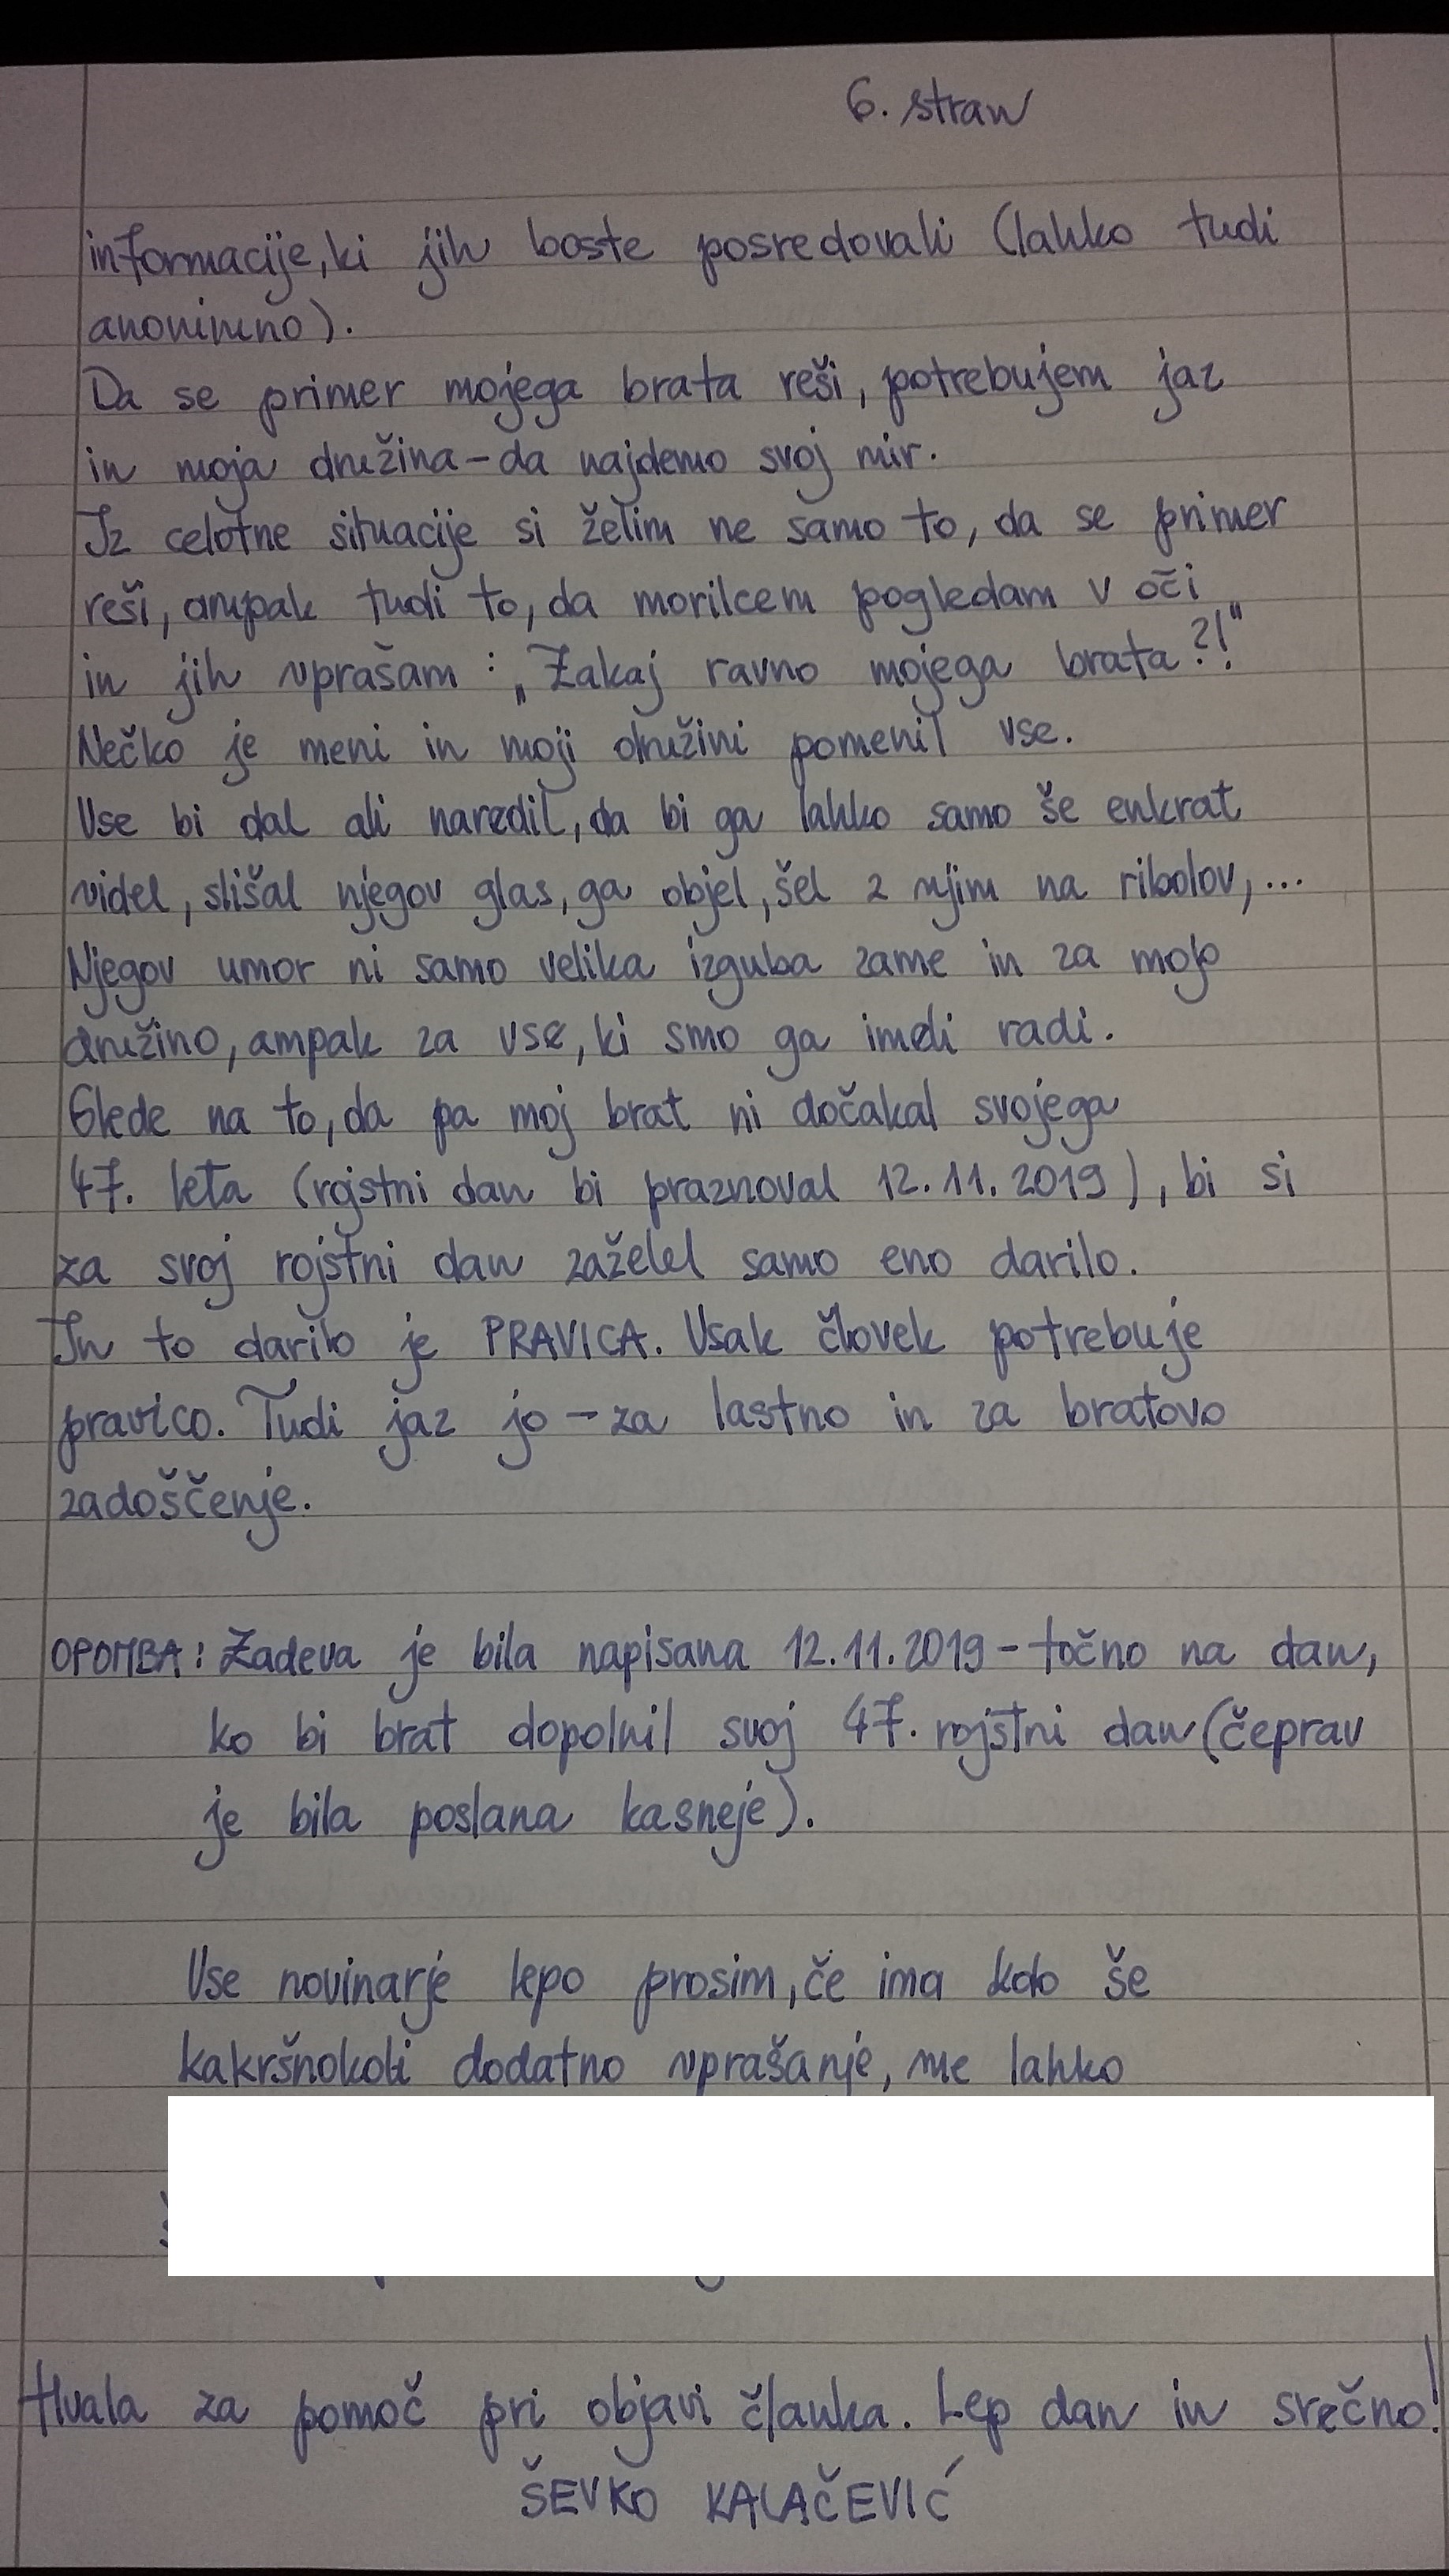 6. stran
informacije, ki jih boste posredovali (lahko tudi
anonimno).
Da se primer mojega brata reši, potrebujem jaz
in moja družina - da najdemo svoj mir.
Iz celotne situacije si želim ne samo to, da se primer
reši, ampak tudi to, da morilcem pogledam v oči
in jih vprašam: „Zakaj ravno mojega brata?!"
Nečko je meni in moji družini pomenil vse.
Vse bi dal ali naredil, da bi ga lahko samo še enkrat
videl, slišal njegov glas, ga objel, šel z njim na ribolov,...
Njegov umor ni samo velika izguba zame in za mojo
družino, ampak za vse, ki smo ga imeli radi.
Glede na to, da pa moj brat ni dočakal svojega
47. leta (rojstni dan bi praznoval 12.11.2019), bi si
za svoj rojstni dan zaželel samo eno darilo.
In to darilo je PRAVICA. Vsak človek potrebuje
pravico. Tudi jaz jo - za lastno in za bratovo
zadoščenje.
OPOMBA: Zadeva je bila napisana 12.11.2019 - točno na dan,
ko bi brat dopolnil svoj 47. rojstni dan (čeprav
je bila poslana kasneje).
Vse novinarje lepo prosim, če ima kdo še
kakršnokoli dodatno vprašanje, me lahko
Hvala za pomoč pri objavi članka. Lep dan in srečno!
ŠEVKO KALAČEVIĆ